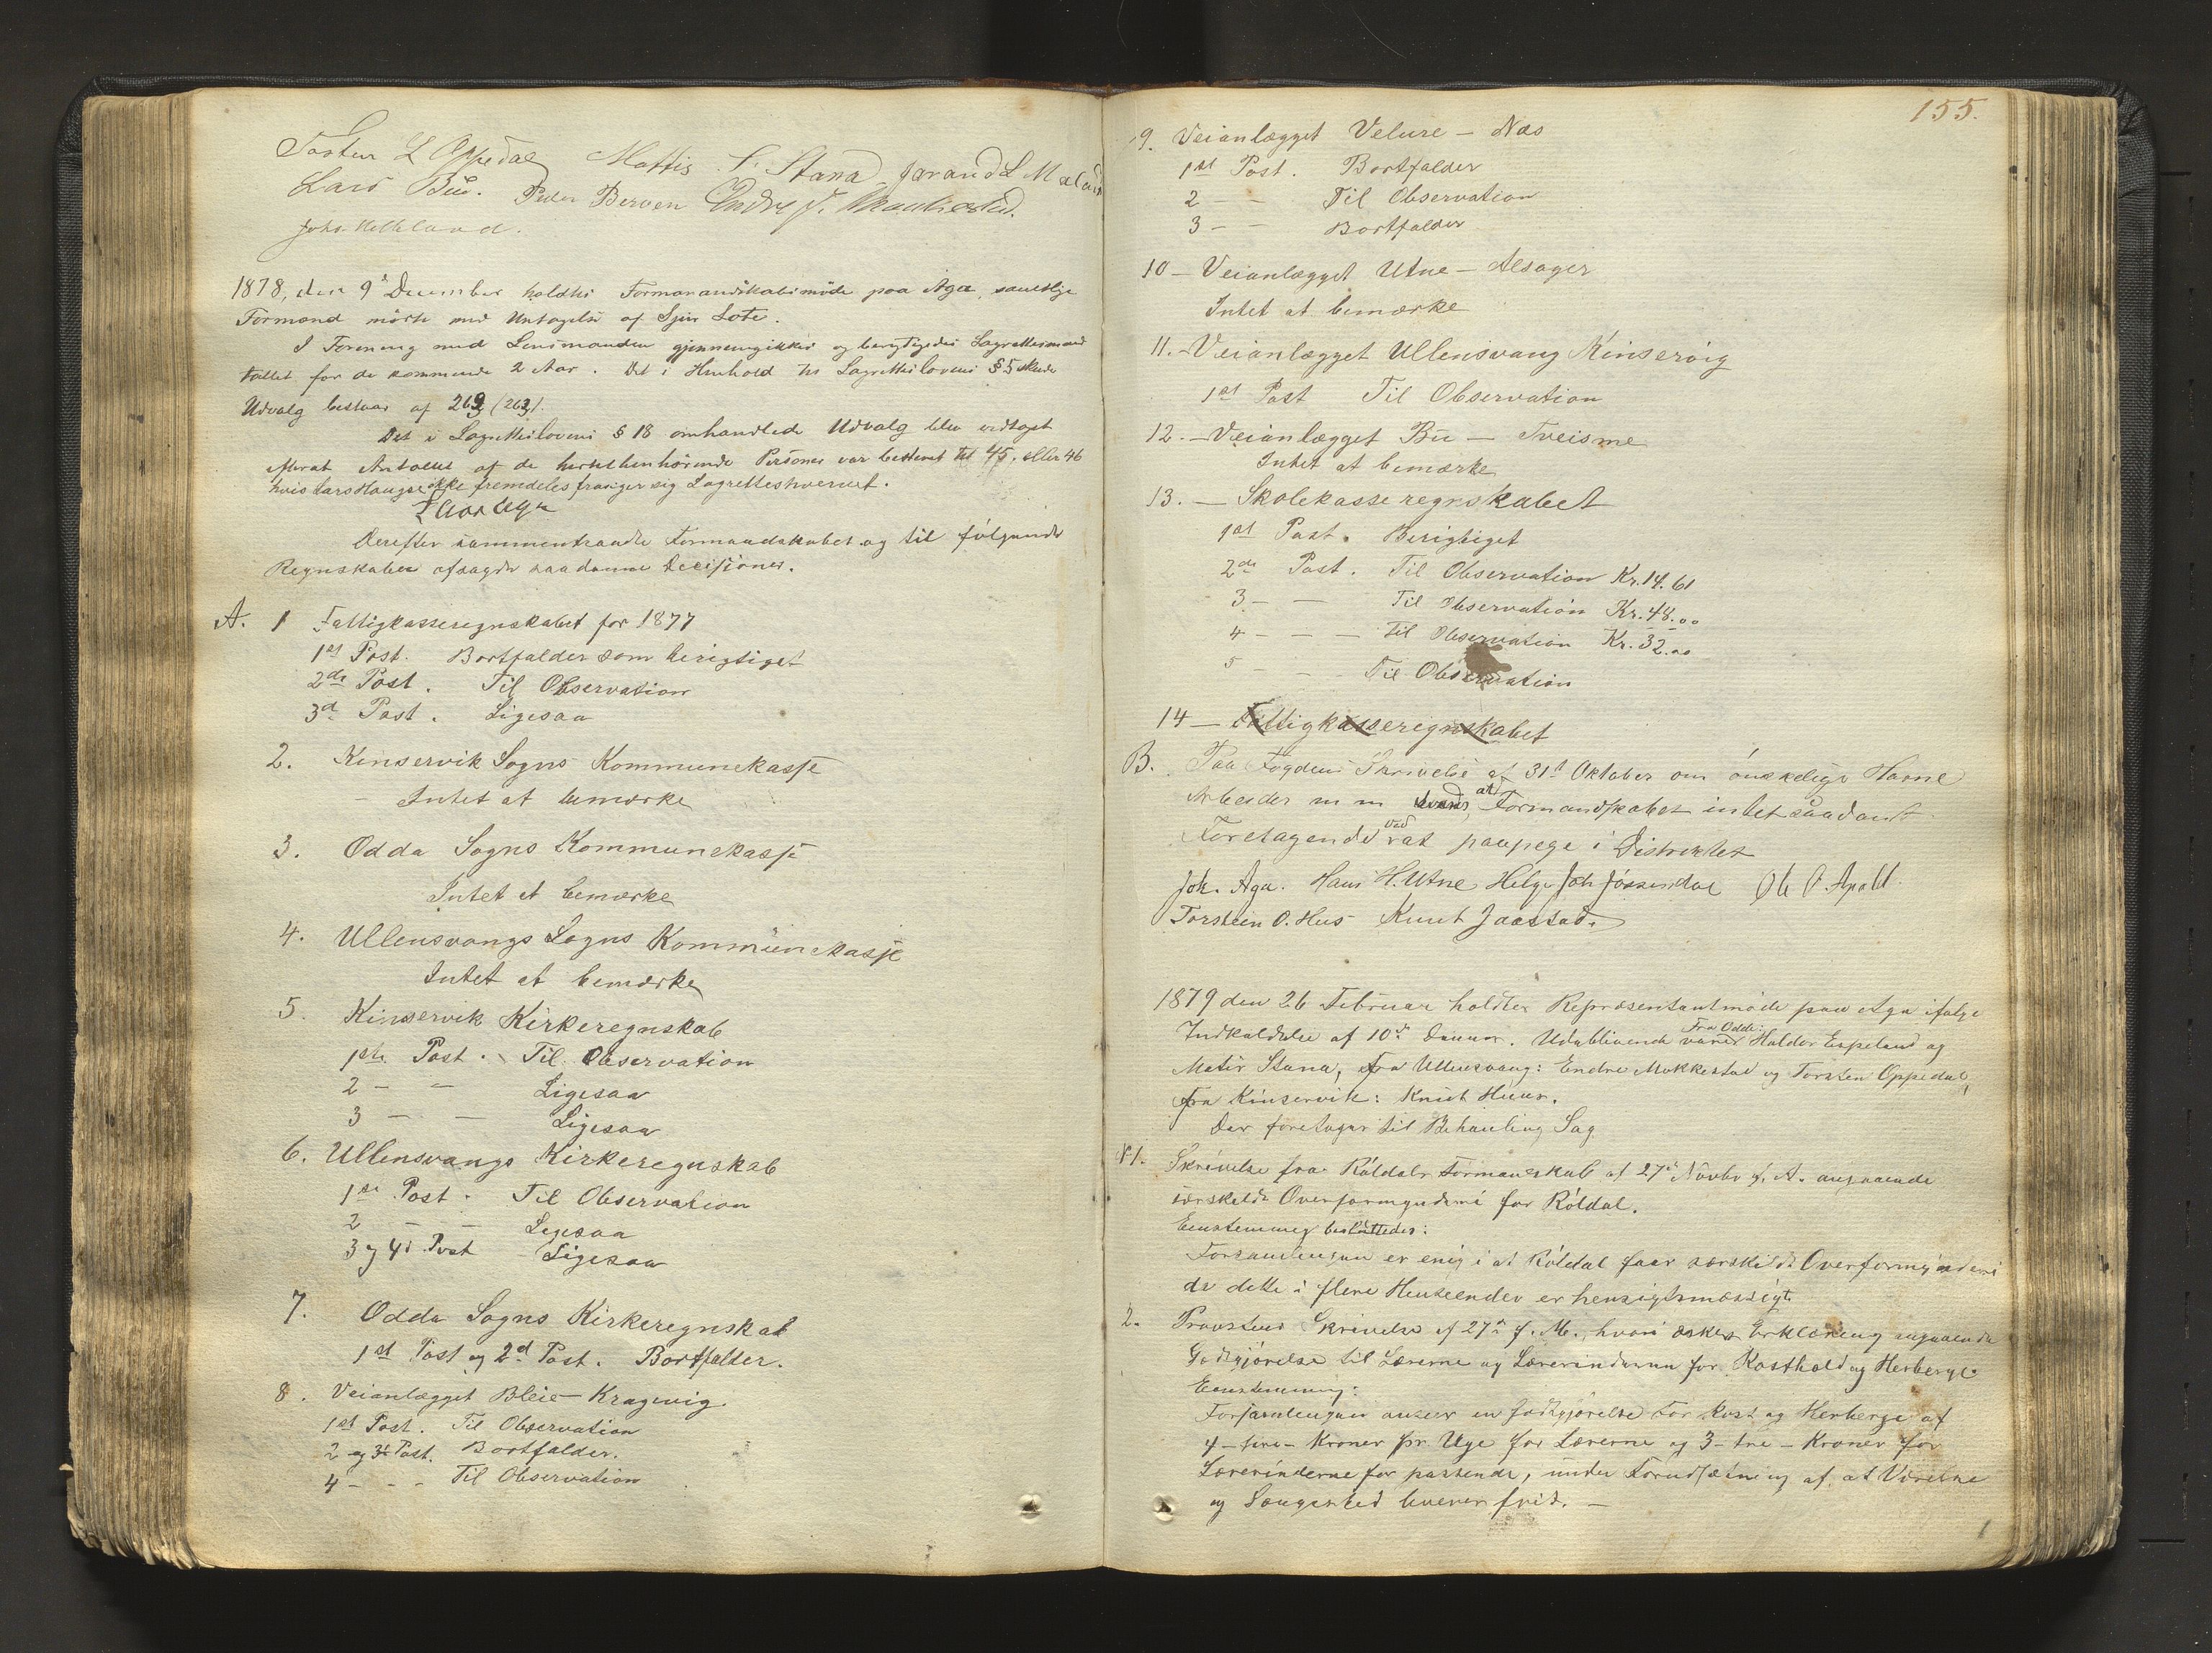 Torsten L Oppedal Mattis S. Stana Jørand L M
Lars Bu. Peder Berven Endre J.
Joh. Helleland.
1878, den 9de December holdtes Formandskabsmøde paa Aga, samtlige
Formænd mødte med Untagelse af Sjur Lote.
I Forening med Lensmanden gjennemgikkes og berigtigedes Lagrettesmand
tallet for de kommende 2 Aar. Det i Henhold til Lagretteslovens § 5 skede
Udvalg bestaar af 263 (263).
Det i Lagretteslovens § 18 omhandlede Udvalg blev vedtaget
efterat Antallet af de hertilhenhørende Personer var bestemt til 45, eller 46
hvis Lars Haugse ikke fremdeles frasiger sig Lagretteshvervet.
Lars Aga
Derefter sammentraadte Formandskabet og til følgende
Regnskaber afsagde saadanne Decisioner.
A. 1 Fattigkasseregnskabet for 1877
1st Post. Bortfalder som berigtiget
2de Post. Til Observation
3d Post. Ligesaa
2. Kinservik Sogns Kommunekasse
- Intet at bemærke
3. Odda Sogns Kommunekasse
Intet at bemærke
4. Ullensvangs Sogns Kommunekasse
Intet at bemærke
5. Kinservik Kirkeregnskab
1ste Post. Til Observation
2 - - Ligesaa
3 - - Ligesaa
6. Ullensvangs Kirkeregnskab
1st Post. Til Observation
2 - - Ligesaa
3 og 4d Post Ligesaa
7. Odda Sogns Kirkeregnskab
1st Post og 2d Post. Bortfalder.
8. Veianlægget Bleie - Kragevig.
1st Post. Til Observation
2 og 3d Post. Bortfalder.
4 - - - Til Observation
155.
9. Veianlægget Velure - Næs
1st Post. Bortfalder
2 - - Til Observation
3 - - Bortfalder
10 - Veianlægget Utne - Alsager
Intet at bemærke
11. - Veianlægget Ullensvang Kinservig
1st Post Til Observation
12. - Veianlægget Bu - Tveisme
Intet at bemærke
13. - Skolekasseregnskabet
1st Post. Berigtiget
2de Post. Til Observation Kr. 14.61
3 - - Til Observation Kr. 48.00
4 - - - Til Observation Kr. 32.00
5 - - - Til Observation
14 - Fattigkasseregnskabet
B. Paa Fogdens Skrivelse af 31st Oktober om ønskelige Havne
Arbeider m m svares, at Formandskabet intet saadant
Foretagende ved at paapege i Distriktet
Joh. Aga. Hans H. Utne Helge Joh Jøssendal Ole O. Apold.
Torstein O. Hus Knut Jaastad.
1879 den 26 Februar holdtes Repræsentantmøde paa Aga ifølge
Indkaldelse af 10de Dennes. Udeblivende vare Fra Odda: Haldor Espeland og
Matis Stana, fra Ullensvang: Endre Mokkestad og Torsten Oppedal,
fra Kinservik: Knut Huus.
Der foretages til Behanling Sag
No 1. Skrivelse fra Røldals Formanskab af 27de Novbr f. A. angaaende
særskildt Overformynderi for Røldal.
Eenstemmig besluttedes:
Forsamlingen er enig i at Røldal faar særskildt Overformynderi
da dette i flere Henseender er hensigtsmæssigt.
2. Provstens Skrivelse af 27de f. M., hvori æskes Erklæring angaaende
Godtgjørelse til Lærerne og Lærerinderne for Kosthold og Herberge.
Eenstemmig:
Forsamlingen anseer en Godtgjørelse for Kost og Herberge af
4 - fire - Kroner pr. Uge for Lærerne og 3 - tre - Kroner for
Lærerinderne for passende, under Forudsætning af, at Værelse
og Sengested leveres frit. -